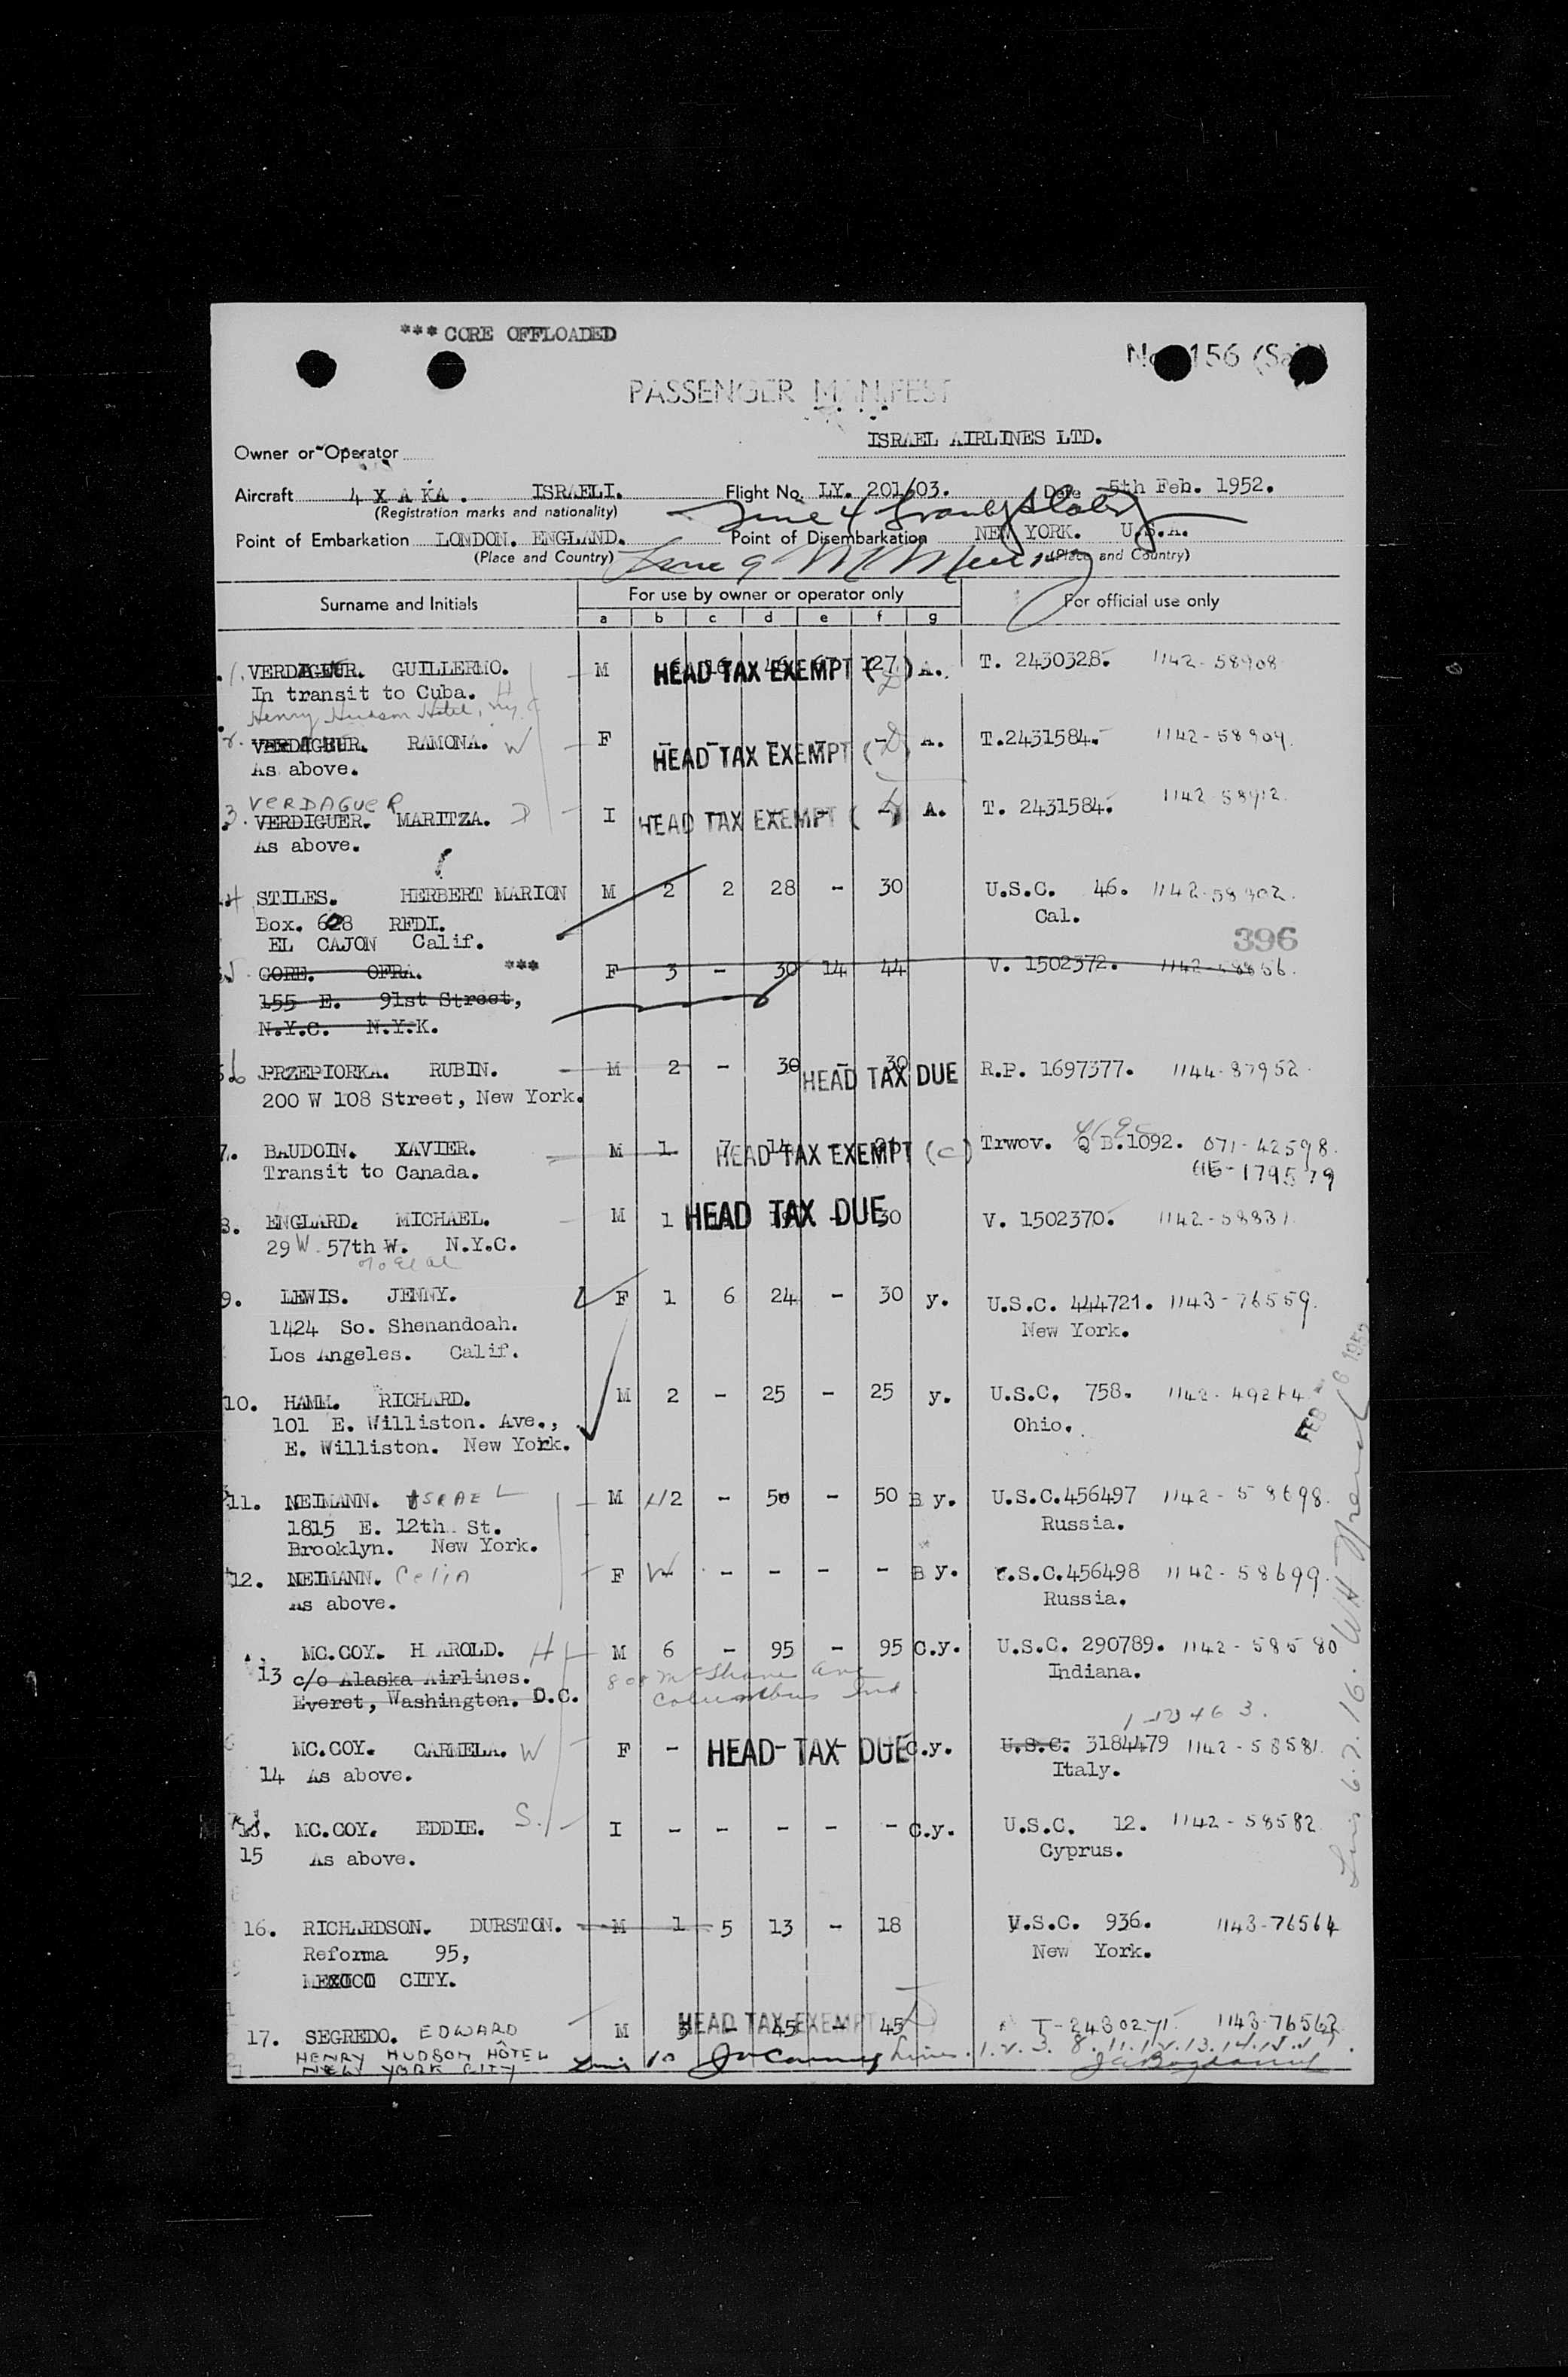 *** CORE OFFLOADED
No. 156 (Sa
PASSENGER MANIFEST
Owner or Operator ISRAEL AIRLINES LTD.
Aircraft 4 X A KA. ISRAELI. Flight No. LY. 201/03. Date 5th Feb. 1952.
(Registration marks and nationality)
Point of Embarkation LONDON. ENGLAND. Point of Disembarkation NEW YORK. U.S.A.
(Place and Country) (Place and Country)
Surname and Initials For use by owner or operator only For official use only
a b c d e f g
1. VERDAGUER. GUILLERMO. M HEAD TAX EXEMPT ( ) 127 A. T. 2430328. 1142-58908
In transit to Cuba. H
Henry Hudson Hotel, ny.
2. VERDAGUER. RAMONA. W F - - - - - A. T.2431584. 1142-58909.
HEAD TAX EXEMPT (
As above.
VERDAGUER
3. VERDIGUER. MARITZA. D I HEAD TAX EXEMPT ( A. T. 2431584. 1142-58912.
As above.
4 STILES. HERBERT MARION M 2 2 28 - 30 U.S.C. 46. 1142-58902.
Box. 628 RFDI. Cal.
EL CAJON Calif.
396
5. CORE. OFRA. *** F 3 - 30 14 44 V. 1502372. 1142-58856.
155 E. 91st Street,
N.Y.C. N.Y.K.
6 PRZEPIORKA. RUBIN. M 2 - 30 - 30 R.P. 1697377. 1144-87952
HEAD TAX DUE
200 W 108 Street, New York.
7. BAUDOIN. XAVIER. M 1 7 14 - 21 Trwov. Q B.1092. 071-42598.
HEAD TAX EXEMPT (c)
Transit to Canada. 179579
8. ENGLARD. MICHAEL. M 1 HEAD TAX DUE 30 V. 1502370. 1142-58831
29 W 57th W. N.Y.C.
% El al
9. LEWIS. JENNY. F 1 6 24 - 30 y. U.S.C. 444721. 1143-76559.
1424 So. Shenandoah. New York.
Los Angeles. Calif.
10. HAMM. RICHARD. M 2 - 25 - 25 y. U.S.C. 758. 1142-49264
101 E. Williston. Ave., Ohio.
E. Williston. New York.
FEB 6 1952
11. NEIMANN. ISRAEL M H2 - 50 - 50 B y. U.S.C.456497 1142-58698.
1815 E. 12th St. Russia.
Brooklyn. New York.
12. NEIMANN. Celia F W - - - - B y. U.S.C.456498 1142-58699.
As above. Russia.
13 MC.COY. H AROLD. H M 6 - 95 - 95 C.y. U.S.C. 290789. 1142-58580
c/o Alaska Airlines. Indiana.
Everet, Washington. D.C.
808 McShane Ave
Columbus Ind.
MC.COY. CARMELA. W F - HEAD TAX DUE C.y. U.S.C. 3184479 1142-58581
14 As above. Italy.
MC.COY. EDDIE. S. I - - - - - C.y. U.S.C. 12. 1142-58582
15 As above. Cyprus.
16. RICHARDSON. DURSTON. M 1 5 13 - 18 U.S.C. 936. 1143-76564
Reforma 95, New York.
MEXICO CITY.
17. SEGREDO. EDWARD M HEAD TAX EXEMPT - 45 - 45 T-2430271. 1143-76562
HENRY HUDSON HOTEL
NEW YORK CITY